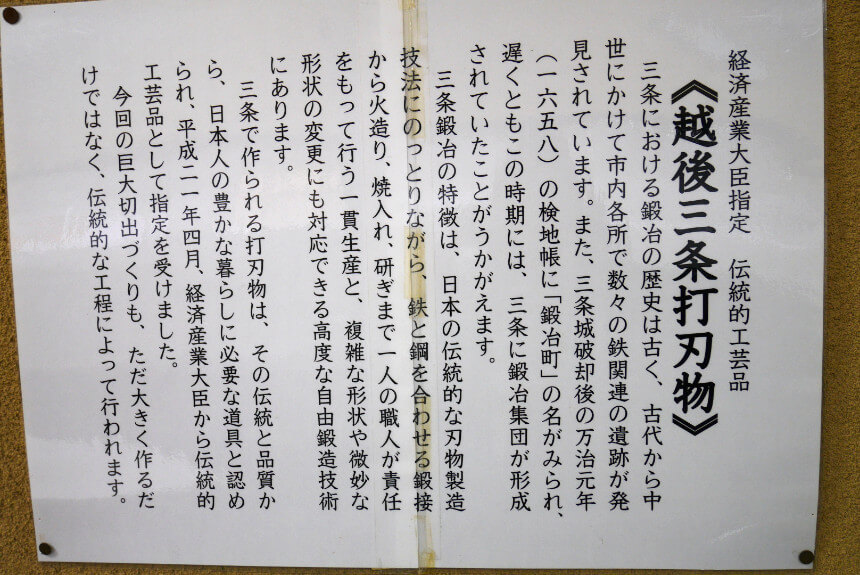 経済産業大臣指定 伝統的工芸品
《越後三条打刃物》
三条における鍛冶の歴史は古く、古代から中
世にかけて市内各所で数々の鉄関連の遺跡が発
見されています。また、三条城破却後の万治元年
(一六五八)の検地帳に「鍛冶町」の名がみられ、
遅くともこの時期には、三条に鍛冶集団が形成
されていたことがうかがえます。
三条鍛冶の特徴は、日本の伝統的な刃物製造
技法にのっとりながら、鉄と鋼を合わせる鍛接
から火造り、焼入れ、研ぎまで一人の職人が責任
をもって行う一貫生産と、複雑な形状や微妙な
形状の変更にも対応できる高度な自由鍛造技術
にあります。
三条で作られる打刃物は、その伝統と品質か
ら、日本人の豊かな暮らしに必要な道具と認め
られ、平成二一年四月、経済産業大臣から伝統的
工芸品として指定を受けました。
今回の巨大切出づくりも、ただ大きく作るだ
けではなく、伝統的な工程によって行われます。